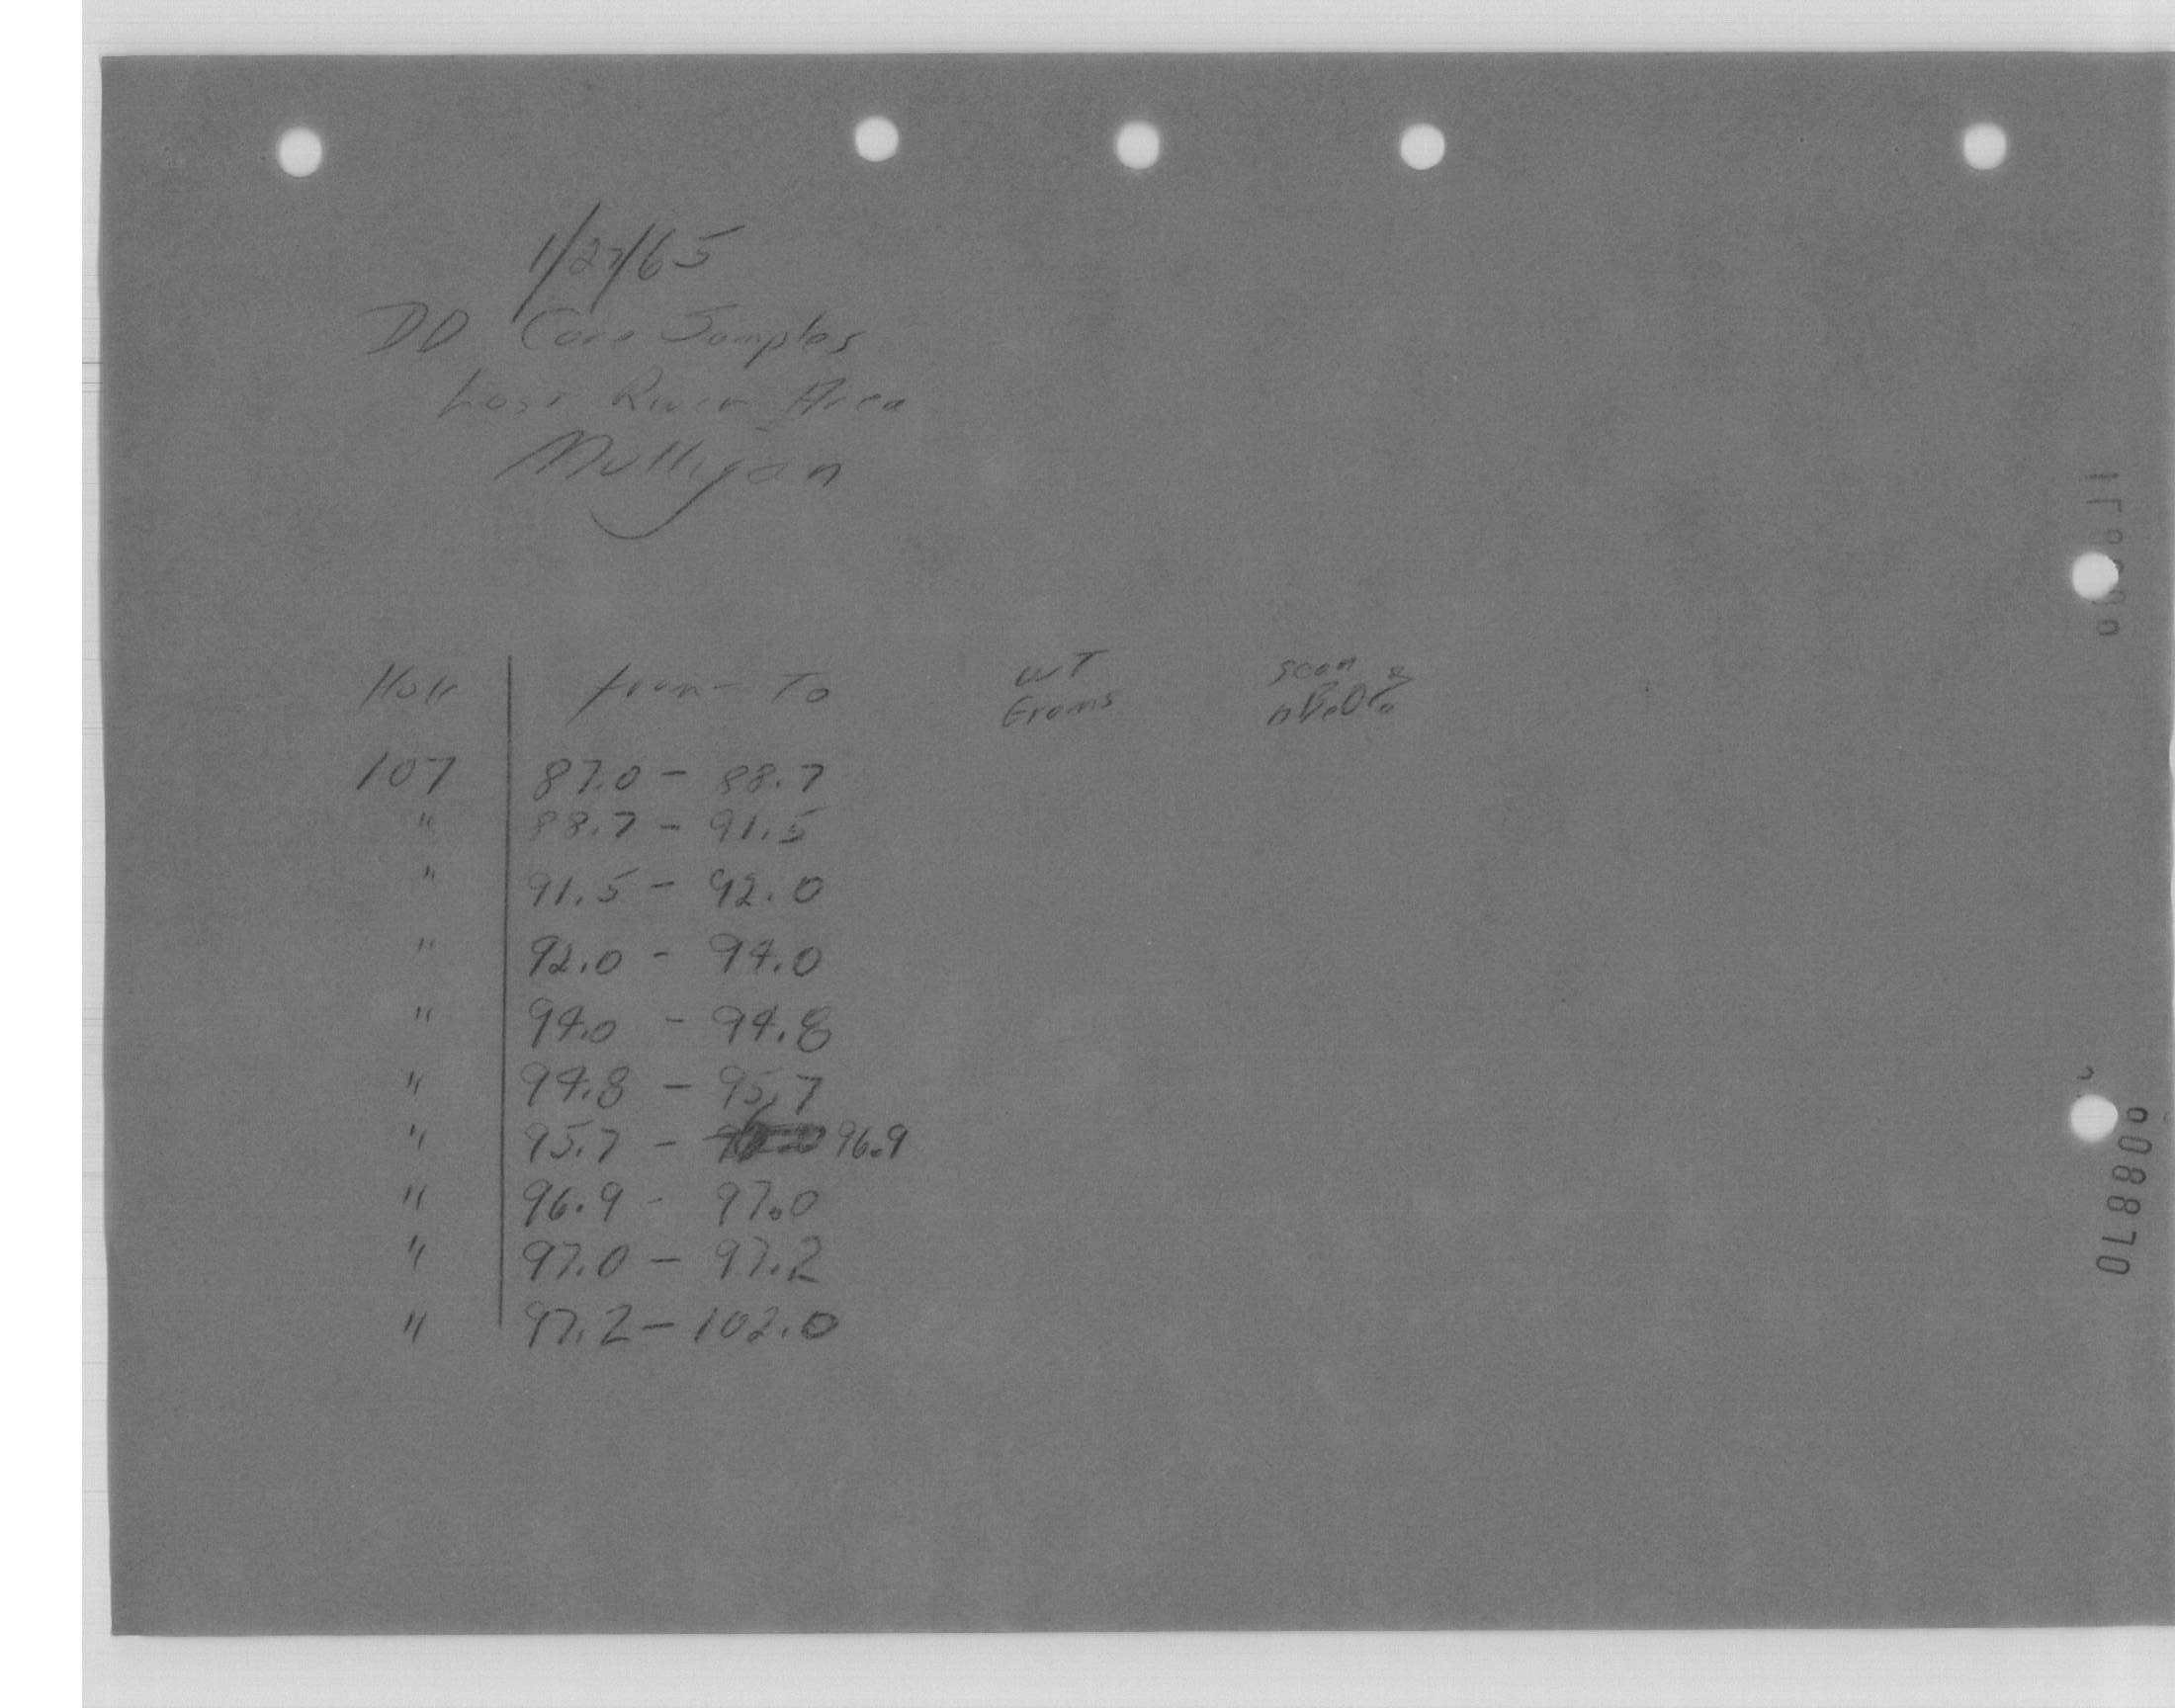 1/27/65
DD Core Samples
Lost River Area
Mulligan
Hole from - To WT Grams scan
107 87.0 - 88.7
" 88.7 - 91.5
" 91.5 - 92.0
" 92.0 - 94.0
" 94.0 - 94.8
" 94.8 - 95.7
" 95.7 - 96.9
" 96.9 - 97.0
" 97.0 - 97.2
" 97.2 - 102.0